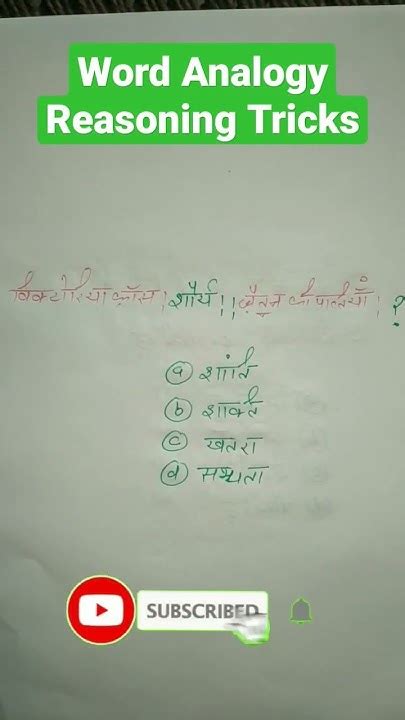 Word Analogy
Reasoning Tricks
विक्टोरिया क्रॉस : शौर्य :: जैतून की पत्तियाँ : ?
a शांति
b शक्ति
c खतरा
d सभ्यता
SUBSCRIBED